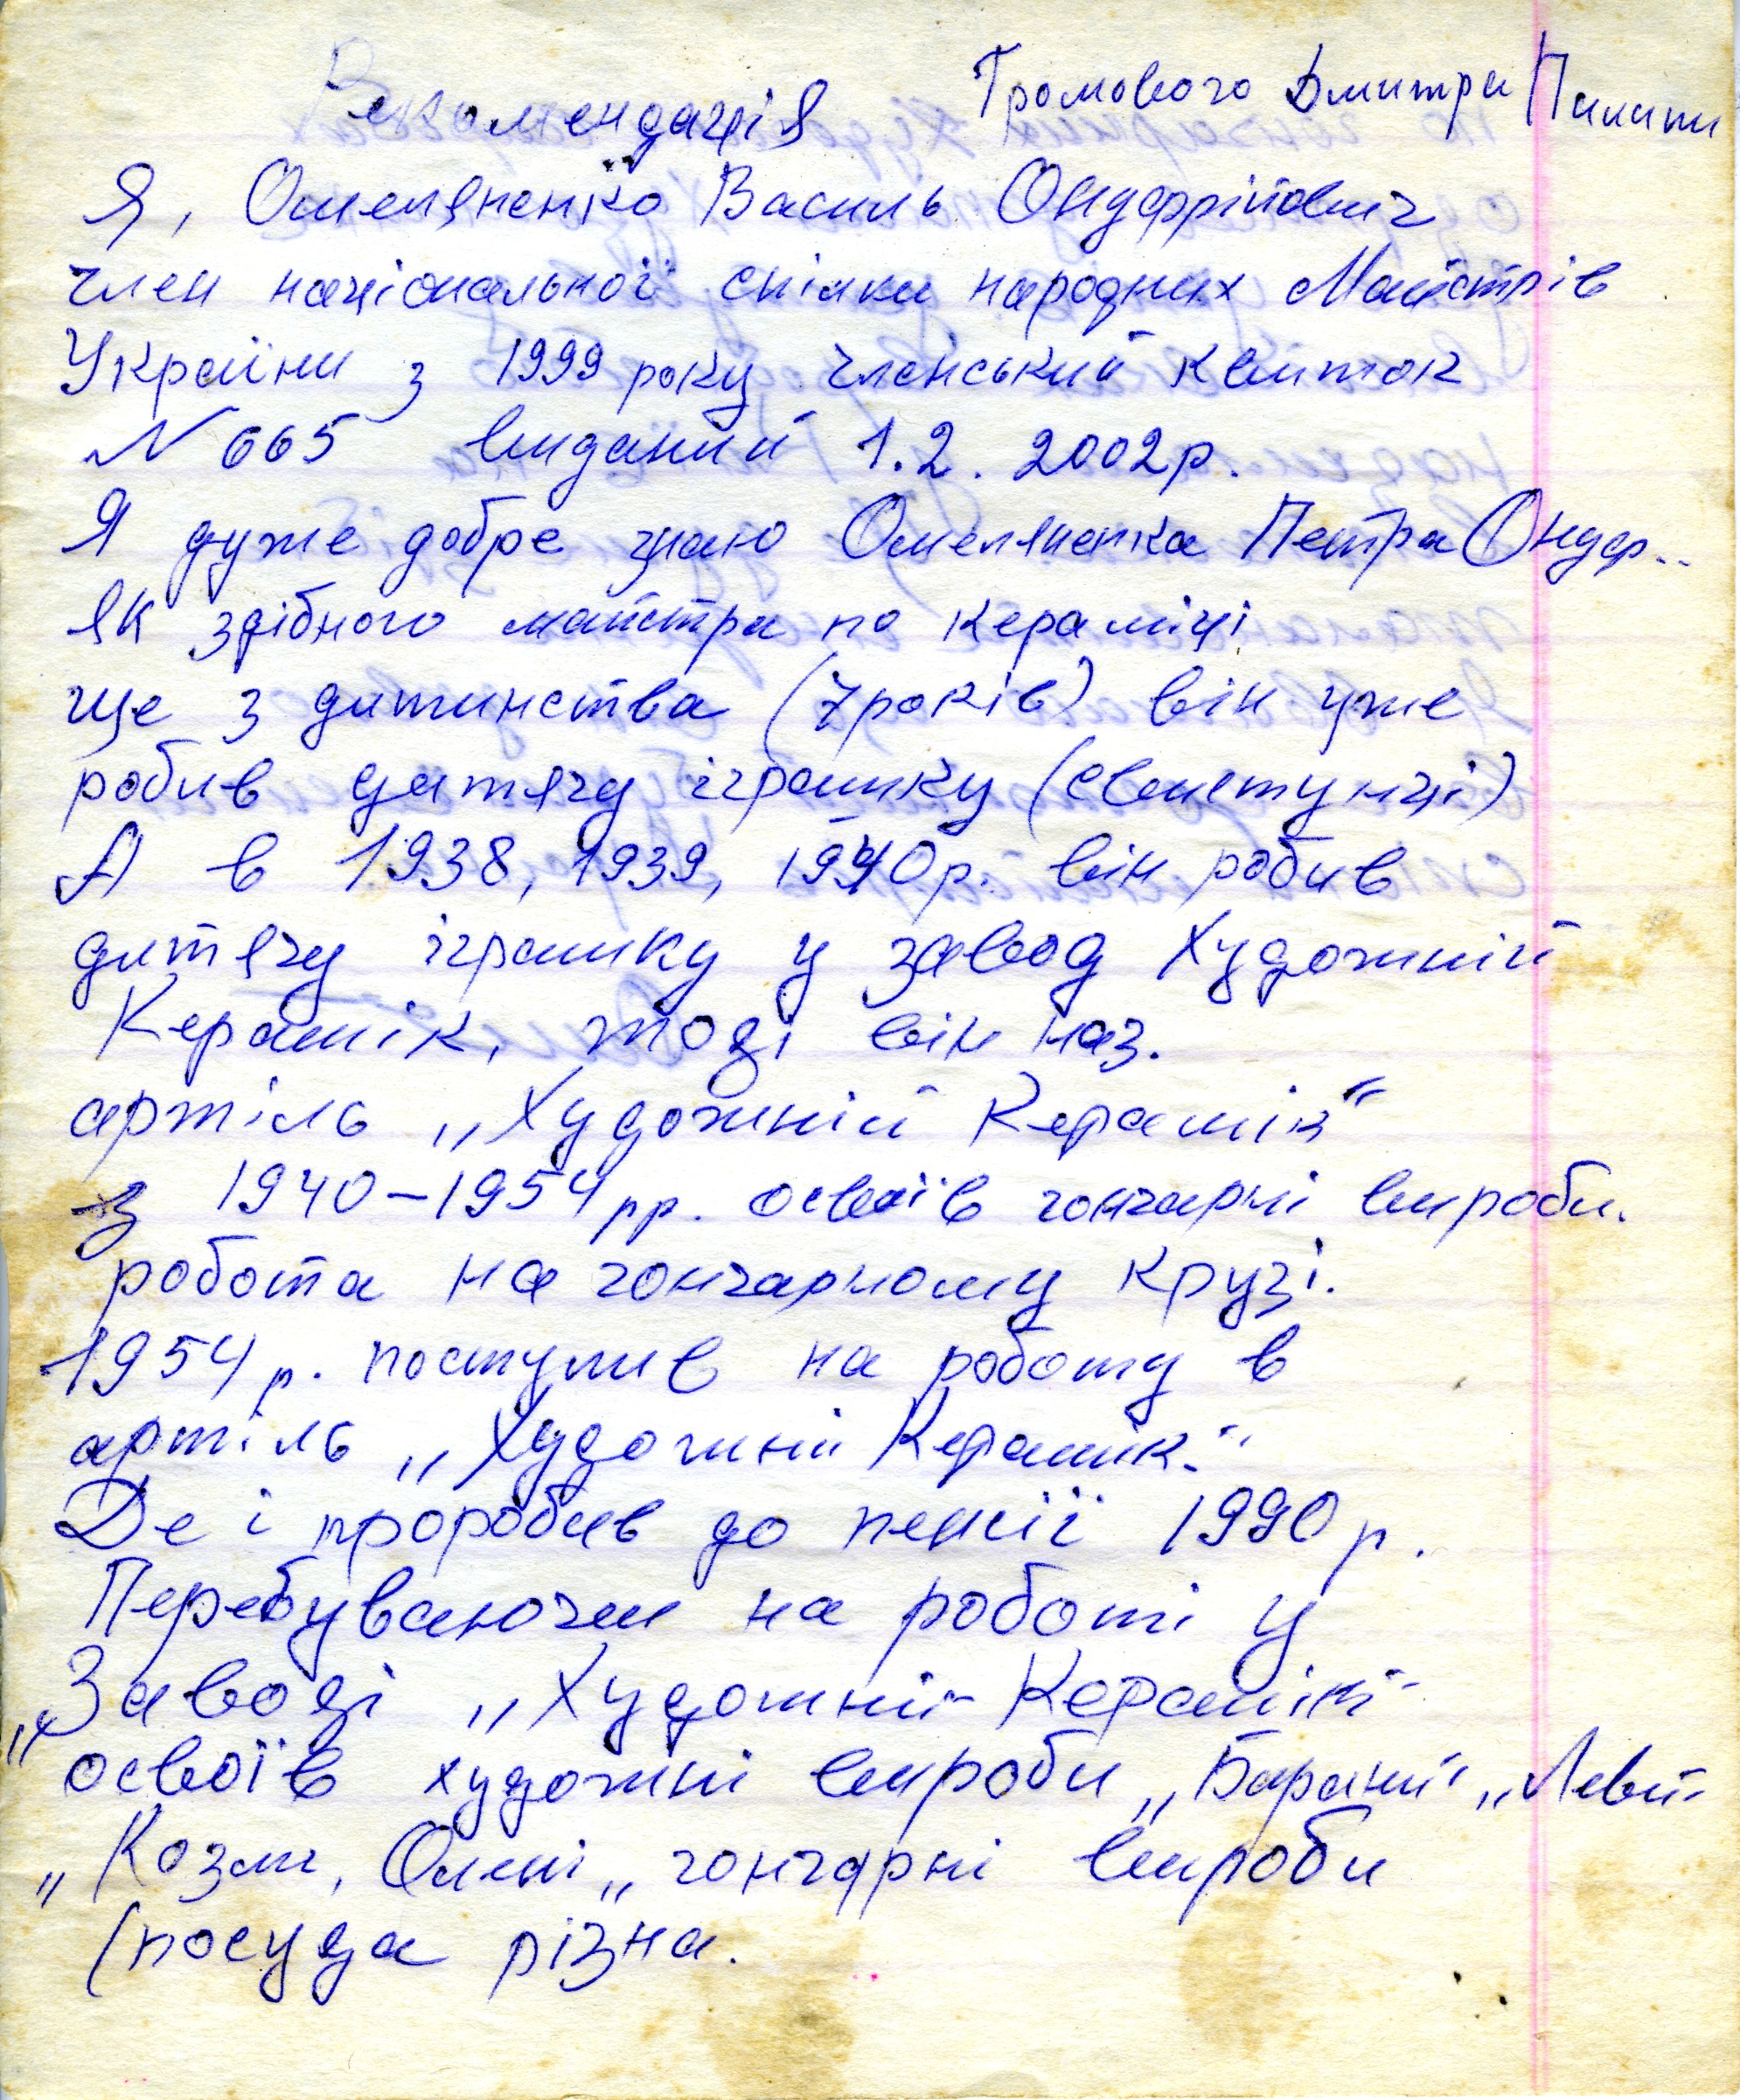 Рекомендація Громового Дмитра
Я, Омеляненко Василь Онуфрійович
член національної спілки народних Майстрів
України з 1999 року членський квиток
N 665 виданий 1.2. 2002р.
Я дуже добре знаю Омеляненка Петра Онуф..
як здібного майстра по кераміці
ще з дитинства (7років) він уже
робив дитячу іграшку (свистунці)
А в 1938, 1939, 1940р. він робив
дитячу іграшку у завод Художній
Керамік, тоді він наз.
артіль „Художній Керамік"
з 1940-1954рр. освоїв гончарні вироби.
робота на гончарному крузі.
1954р. поступив на роботу в
артіль „Художній Керамік."
Де і проробив до пенсії 1990р.
Перебуваючи на роботі у
Заводі „Художній Керамік"
„освоїв художні вироби „Барани" „Леви"
„Козли, Олені „ гончарні вироби
(посуда різна.